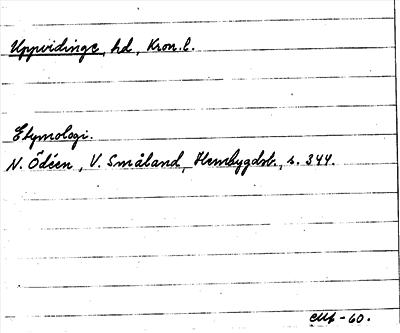 Uppvidinge, hd, Kron. l.
Etymologi.
N. Ödéen, V. Småland, Hembygdsb., s. 344.
-60.